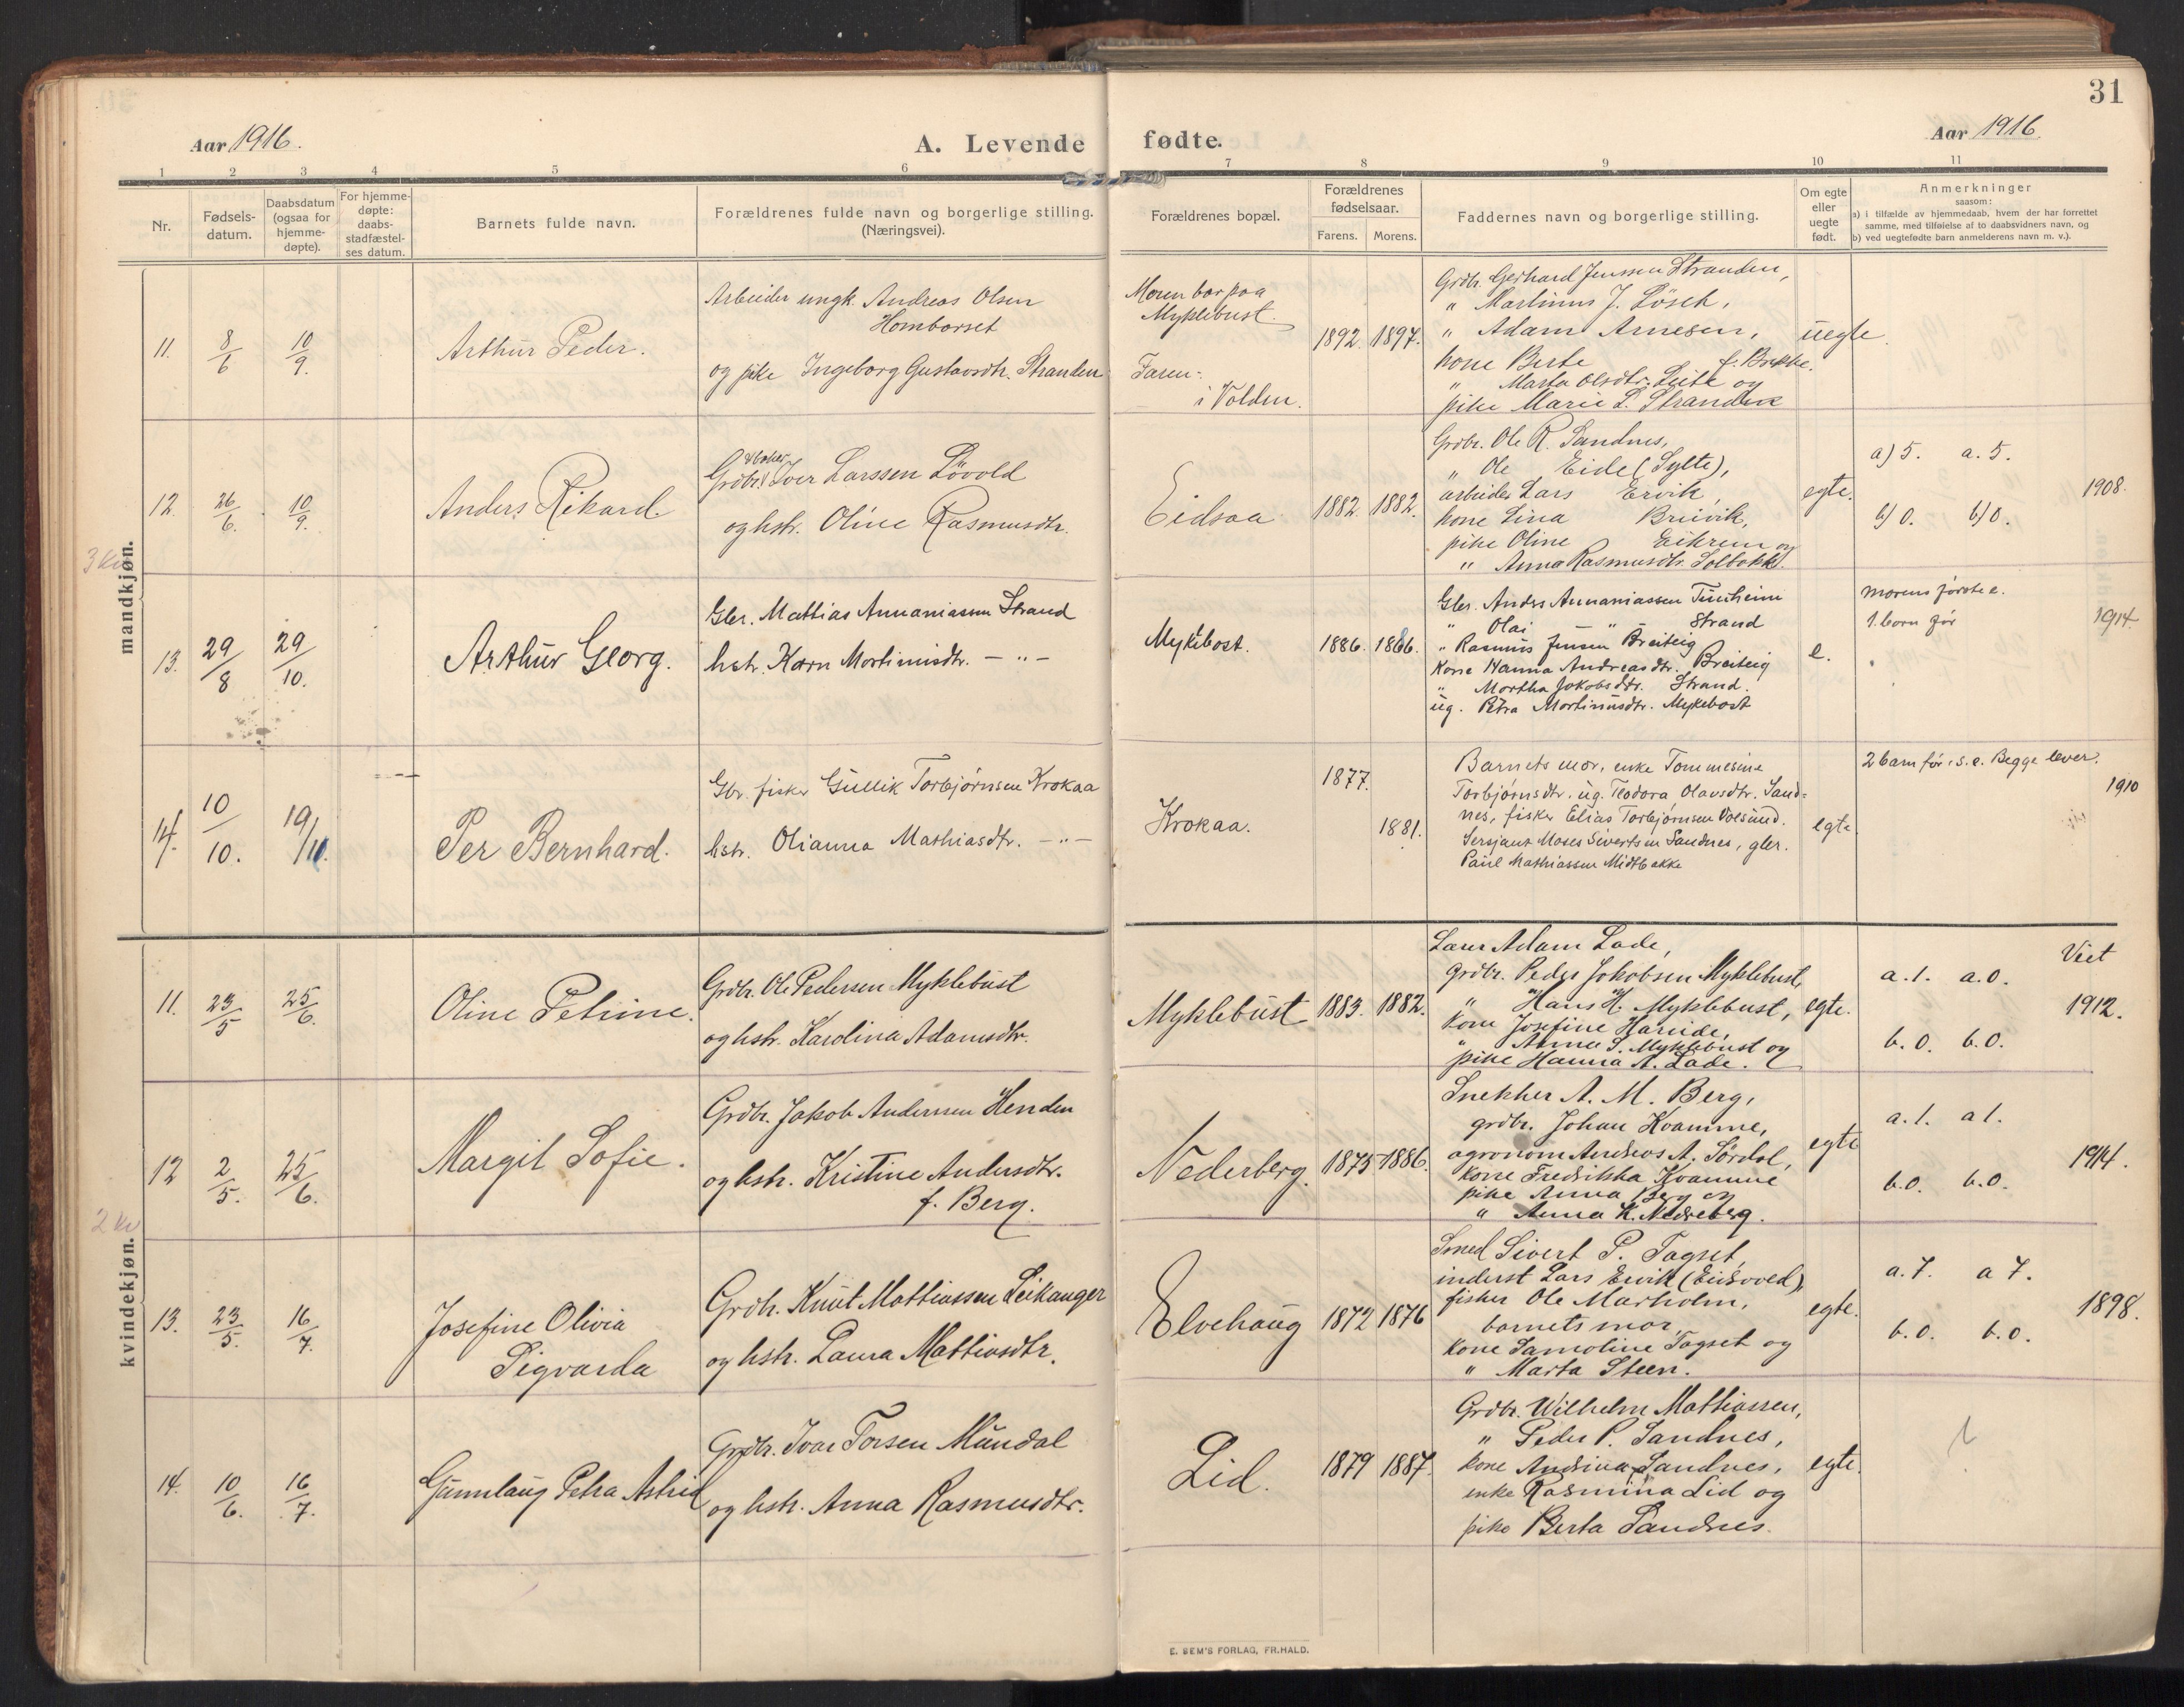 31
Aar 1916.
A. Levende fødte.
Aar 1916
1 2 3 4 5 6 7 8 9 10 11
Nr.
Fødsels-
datum.
Daabsdatum
(ogsaa for
hjemme-
døpte).
For hjemme-
døpte:
daabs-
stadfæstel-
ses datum.
Barnets fulde navn.
Forældrenes fulde navn og borgerlige stilling.
(Næringsvei).
Forældrenes bopæl.
Forældrenes
fødselsaar.
Farens. Morens.
Faddernes navn og borgerlige stilling.
Om egte
eller
uegte
født.
Anmerkninger
saasom:
a) i tilfælde av hjemmedaab, hvem der har forrettet
samme, med tilføielse af to daabsvidners navn, og
b) ved uegtefødte barn anmelderens navn m. v.).
mandkjøn.
11. 8/6 10/9.
Arthur Peder.
Arbeider ungk. Andreas Olsen
Homborset
og pike Ingeborg Gustavsdtr. Stranden
Moren bor paa
Myklebust.
Faren
i Volden.
1892. 1897.
Grdbr. Gerhard Jenssen Stranden,
" Martinus J. Løseth,
" Adam Arnesen,
kone Berte f. Brekke.
" Marta Olsdtr. Leite og
pike Marie L. Stranden
uegte.
12. 26/6. 10/9.
Anders Rikard.
Grdbr. Iver Larssen Løvold
og hstr. Oline Rasmusdtr.
Eidsaa
1882. 1882.
Grdbr. Ole R. Sandnes,
" Ole Eide (Sylte),
arbeider Lars Ervik,
kone Lina Breivik,
pike Oline Eikrem og
" Anna Rasmusdtr. Solbakk.
egte.
a) 5. a. 5.
b) 0. b) 0.
1908.
13. 29/8 29/10.
Arthur Georg.
Gbr. Mattias Annaniassen Strand
hstr. Karn Martinusdtr. - " -
Myklebost.
1886. 1886.
Gbr. Anders Annaniassen Tunheim
" Olai - " - Strand
" Rasmus Jensen Breiteig
Kone Hanna Andreasdtr. Breiteig
" Martha Jakobsdtr. Strand.
ug. Petra Martinusdtr. Myklebost
e.
morens første e.
1. barn før
1914.
14. 10/10. 19/10.
Per Bernhard.
Gbr. fisker Gullik Torbjørnsen Krokaa
hstr. Olianna Mathiasdtr. - " -
Krokaa.
1877.
1881.
Barnets mor, enke Tommesine
Torbjørnsdtr. ug. Teodora Olavsdtr. Sand=
nes, fisker Elias Torbjørnsen Voksund.
Sersjant Moses Sivertsen Sandnes, gbr.
Paul Mathiassen Midtbakke
egte
2 barn før i s. e. Begge lever.
1910
kvindekjøn.
11. 23/5 25/6.
Oline Petrine.
Grdbr. Ole Pedersen Myklebust
og hstr. Karolina Adamsdtr.
Myklebust
1883. 1882.
Lars Adam Lade,
grdbr. Peder Jakobsen Myklebust,
" Hans H. Myklebust,
kone Josefine Hareide,
" Anna S. Myklebust og
pike Hanna A. Lade.
egte.
a. 1. a. 0.
b. 0. b. 0.
Viet
1912.
12 2/5. 25/6.
Margit Sofie.
Grdbr. Jakob Andersen Henden
og hstr. Kristine Andersdtr.
f. Berg.
Nederberg.
1875 1886.
Snekker A. M. Berg,
grdbr. Johan Kvamme,
agronom Andreas A. Sørdal,
kone Fredrikka Kvamme
pike Anna Berg og
" Anna K. Nedreberg.
egte
a. 1. a 1.
b. 0. b. 0.
1914.
13. 23/5. 16/7.
Josefine Olivia
Sigvarda
Grdbr. Knut Mattiassen Leikanger
og hstr. Laura Mattiasdtr.
Elvehaug
1872 1876
Smed Sivert P. Tagset,
inderst Lars Ervik (Eidsvoed),
fisker Ole Marholm,
barnets mor,
kone Samoline Tagset og
" Marta Steen.
egte.
a. 7. a 7.
b. 0. b. 0.
1898.
14. 10/6. 16/7.
Gunnlaug Petra Astrid
Grdbr. Ivar Torsen Mundal
og hstr. Anna Rasmusdtr.
Lid.
1879 1887.
Grdbr. Wilhelm Mattiassen,
" Peder P. Sandnes,
kone Andrina Sandnes,
enke Rasmina Lid og
pike Berta Sandnes.
egte.
E. SEM'S FORLAG, FR.HALD.